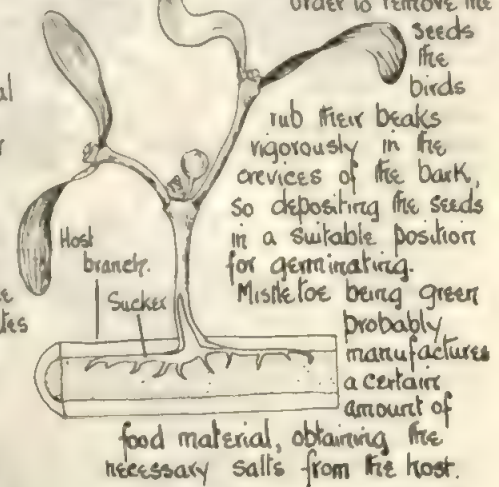 order to remove the
seeds
the
birds
rub their beaks
vigorously in the
crevices of the bark,
so depositing the seeds
in a suitable position
for germinating.
Mistletoe being green
probably
manufactures
a certain
amount of
food material, obtaining the
necessary salts from the host.
Host
branch.
Sucker